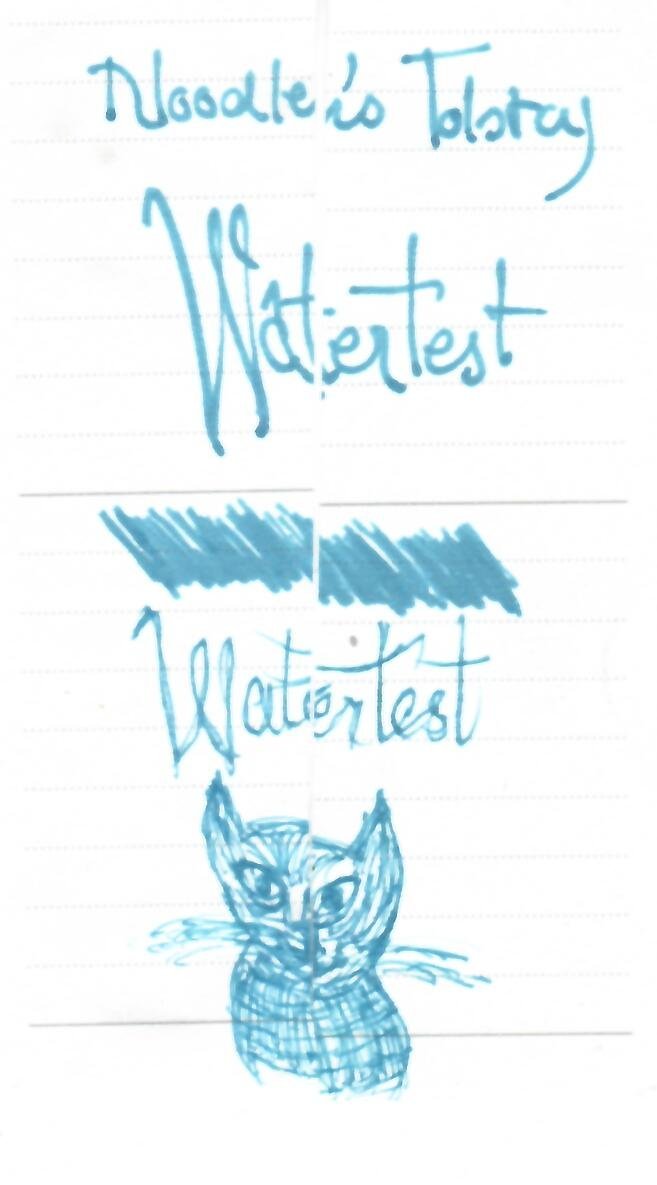 Noodle is Tolstoy
Watertest
Watertest